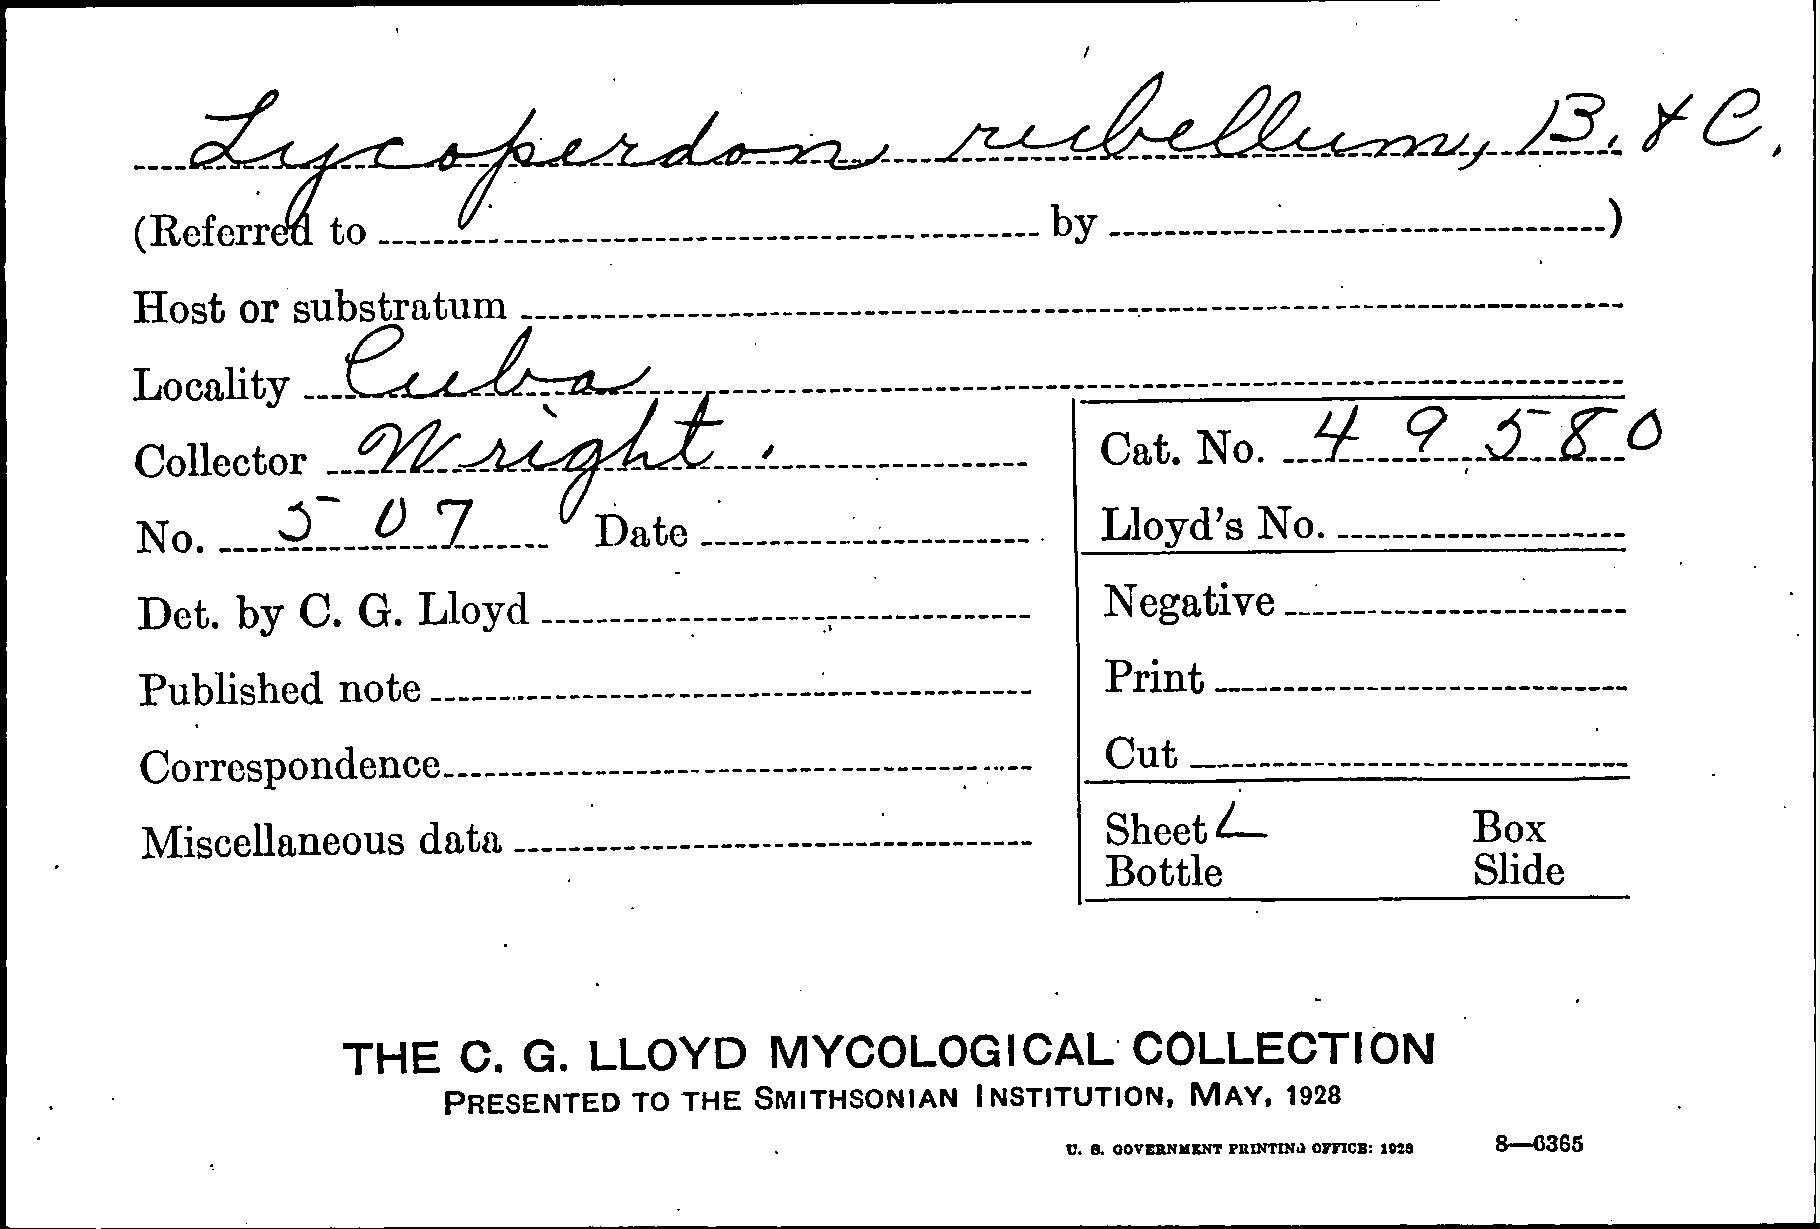 Lycoperdon rubellum, B. & C.
(Referred to by )
Host or substratum
Locality Cuba
Collector Wright.
Cat. No. 49580
No. 507 Date
Lloyd's No.
Det. by C. G. Lloyd
Negative
Published note
Print
Correspondence
Cut
Miscellaneous data
Sheet Box
Bottle Slide
THE C. G. LLOYD MYCOLOGICAL COLLECTION
PRESENTED TO THE SMITHSONIAN INSTITUTION, MAY, 1928
U. S. GOVERNMENT PRINTING OFFICE: 1928 8—6365